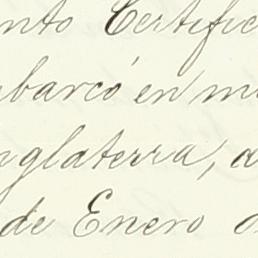 nto Certific
mbarcó en m
nglaterra, a
de Enero d